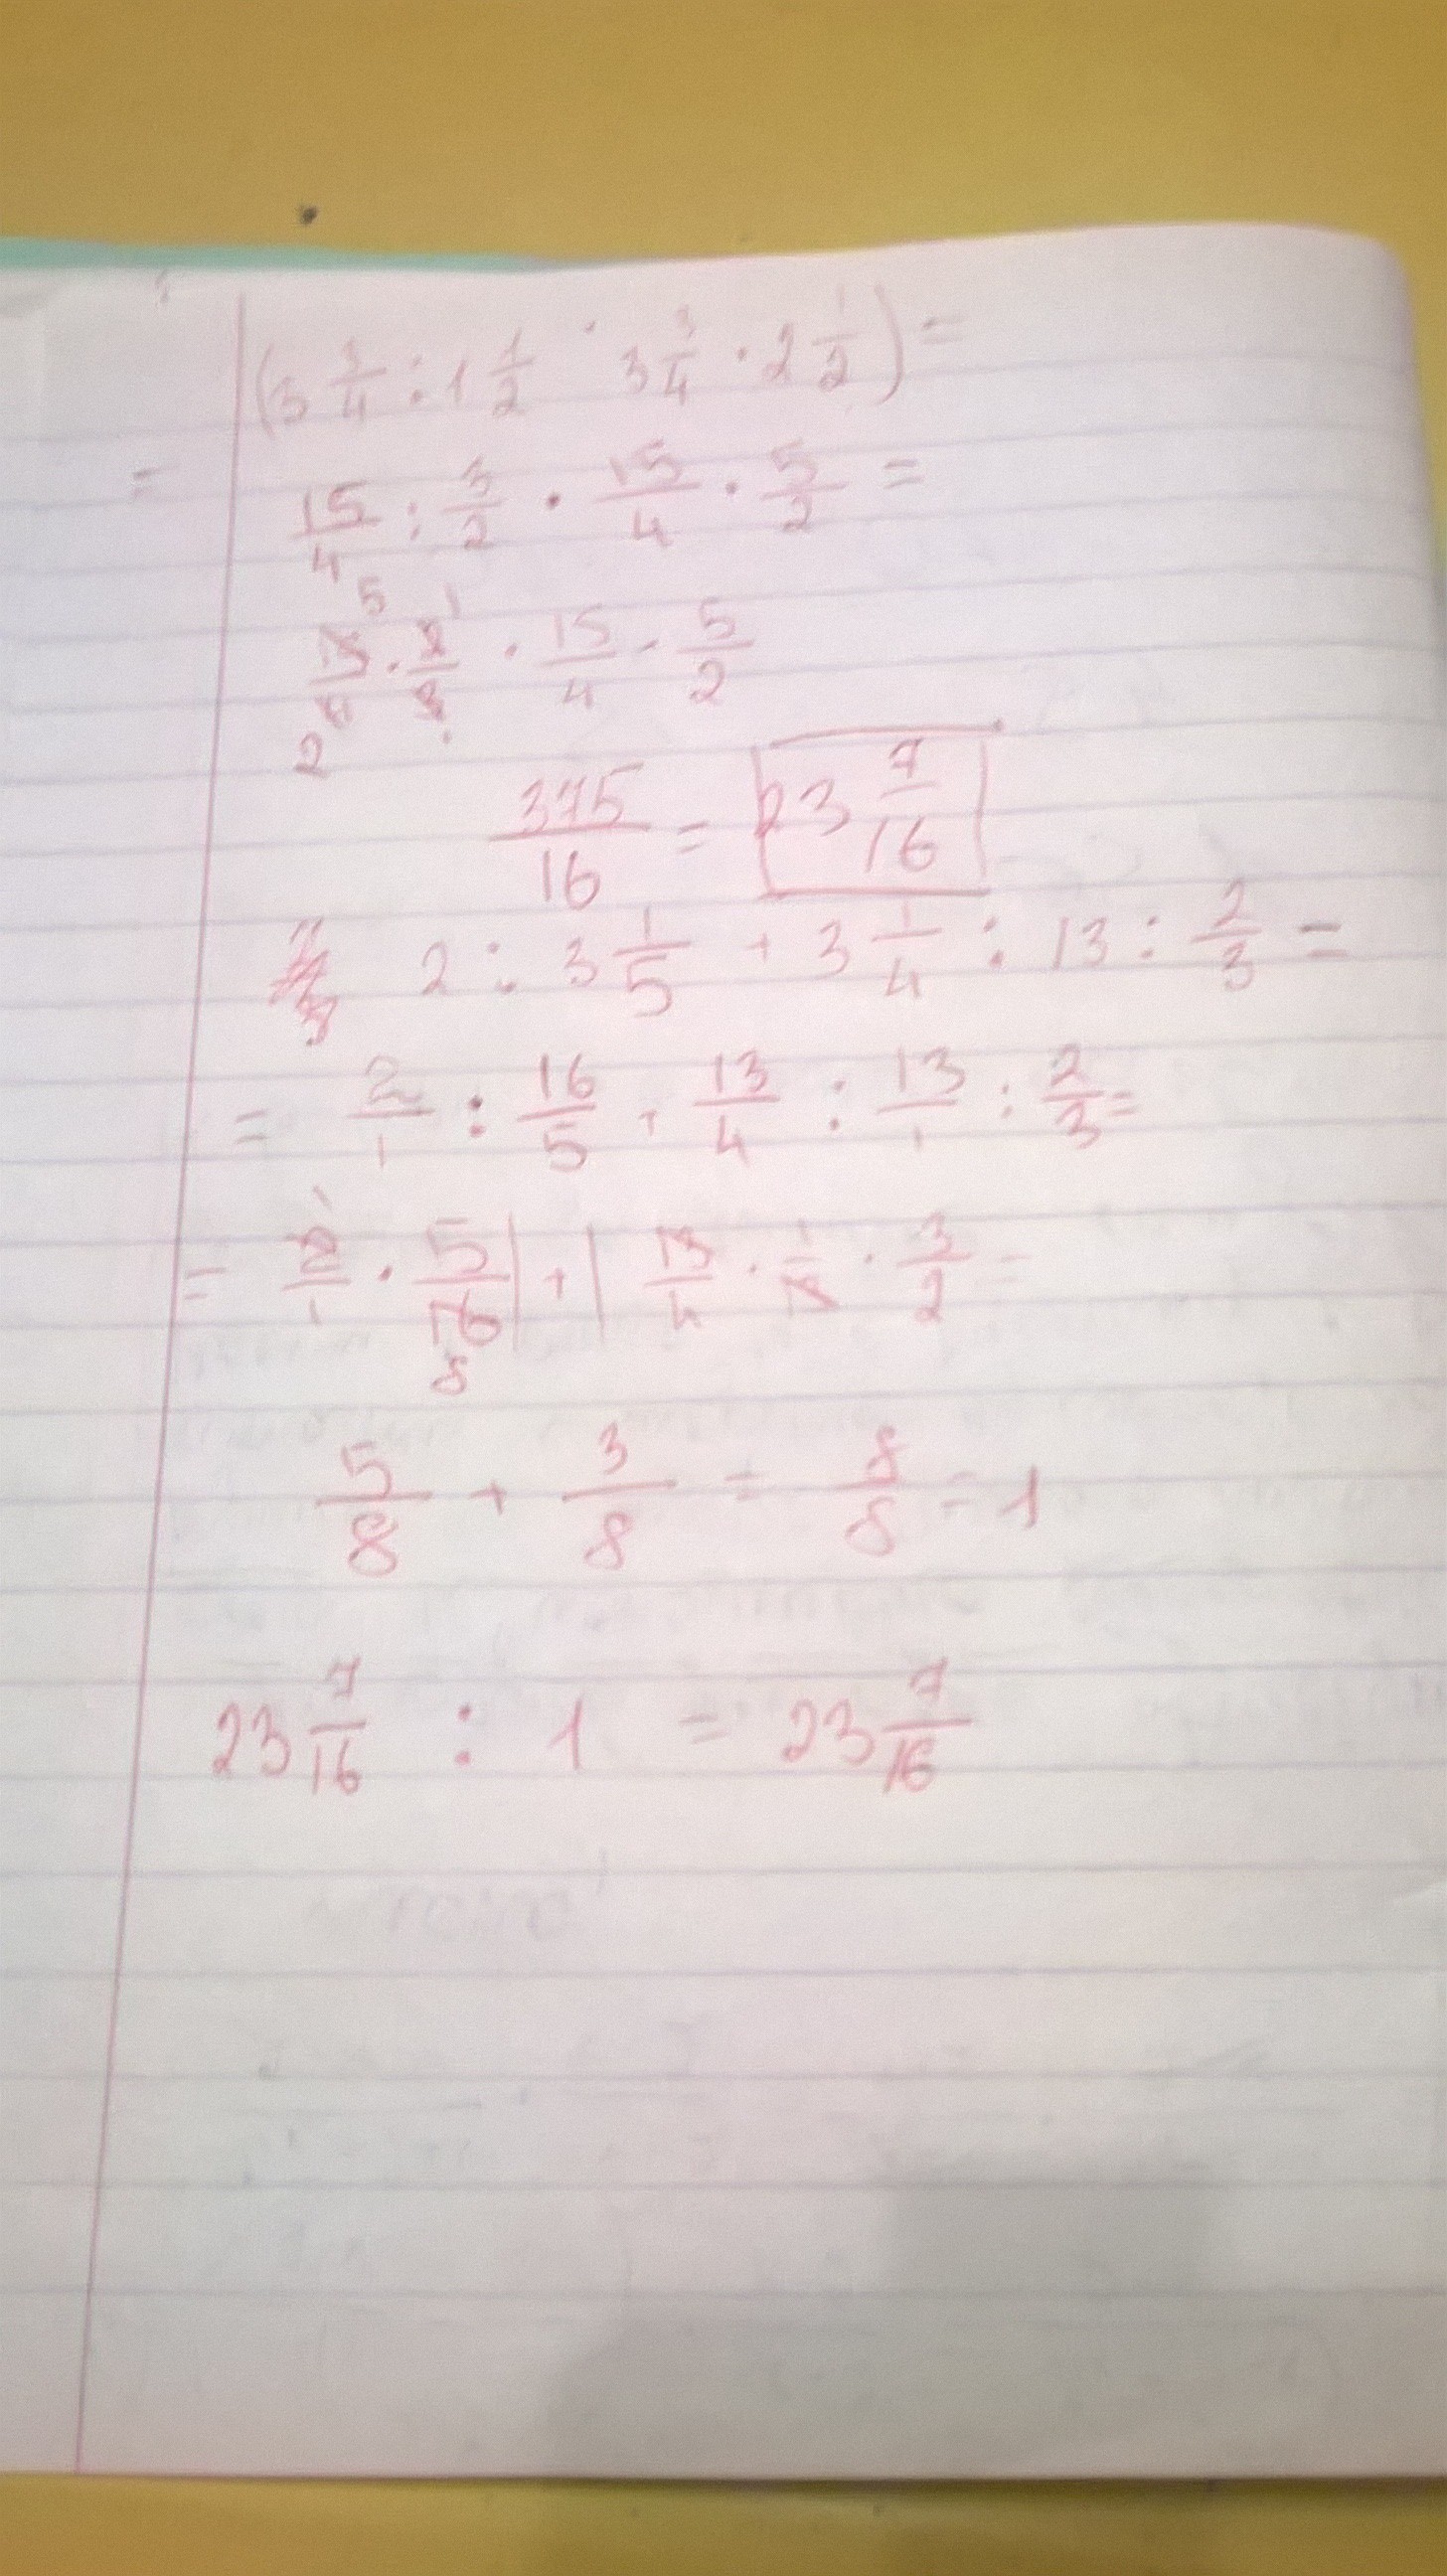 (3 3/4 : 1 1/2 · 3 3/4 · 2 1/2) =
= 15/4 : 3/2 · 15/4 · 5/2 =
15/4 · 2/3 · 15/4 · 5/2
5 1 2
375/16 = 23 7/16
2 : 3 1/5 + 3 1/4 : 13 : 2/3 =
= 2/1 : 16/5 + 13/4 : 13/1 : 2/3 =
= 2/1 · 5/16 + 13/4 · 1/13 · 3/2 =
1 8
5/8 + 3/8 = 8/8 = 1
23 7/16 : 1 = 23 7/16